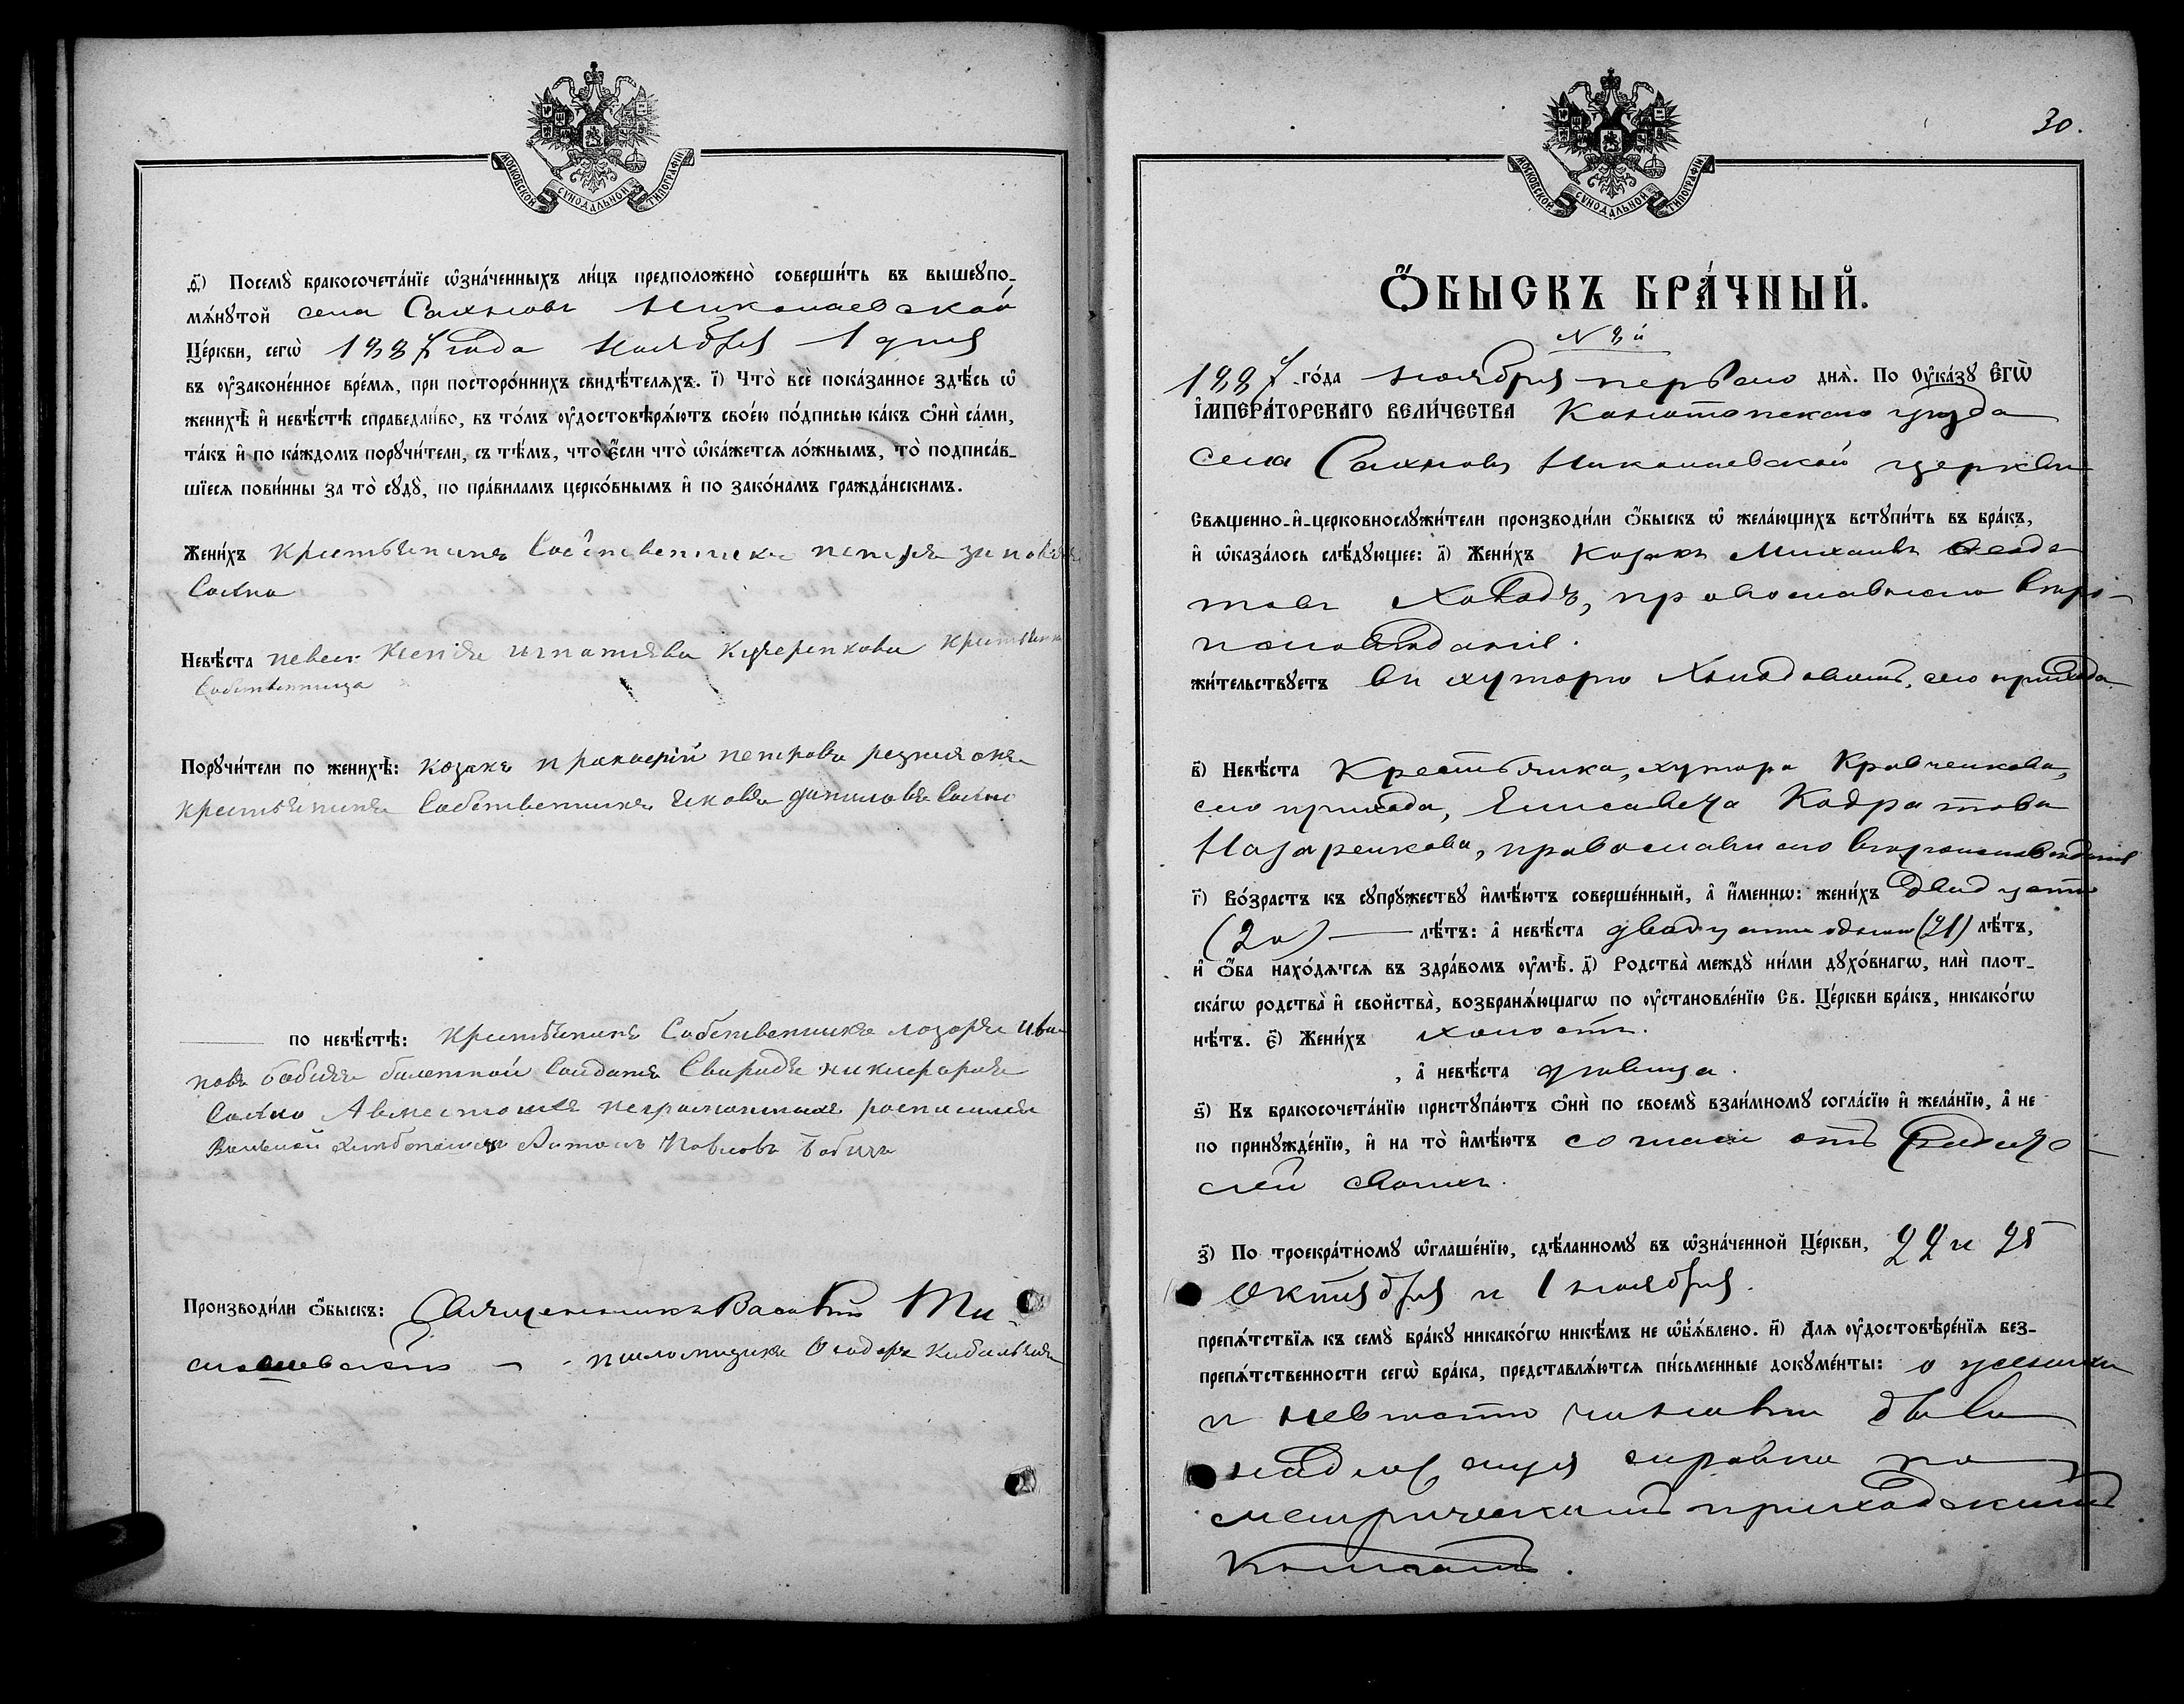 МОСКОВСКОЙ СѴНОДАЛЬНОЙ ТИПОГРАФІИ
ѳ҃) Посемꙋ̀ бракосочета́нїе ѡ҆зна́ченныхъ ли́цъ предположено̀ соверши́ть въ вышеꙋпо-
мѧ́нꙋтой села Сахновъ Николаевской
Це́ркви, сегѡ̀ 1887 года Ноября 1 дня
въ ᲂу҆законе́нное вре́мѧ, при посторо́ннихъ свидѣ́телѧхъ. і҃) Что̀ всѐ пока́занное здѣ́сь ѡ҆
женихѣ̀ и҆ невѣ́стѣ справедли́во, въ то́мъ ᲂу҆достовѣрѧ́ютъ свое́ю по́дписью ка́къ ѻ҆нѝ са́ми,
та́къ и҆ по ка́ждомъ порꙋчи́тели, съ тѣ́мъ, что̀ є҆́сли что̀ ѡ҆ка́жетсѧ ло́жнымъ, то̀ подписа́в-
шїесѧ пови́нны за то̀ сꙋдꙋ̀, по пра́виламъ церко́внымъ и҆ по зако́намъ гражда́нскимъ.
Жени́хъ крестьянинъ Собственникъ петръ
Сахно
Невѣ́ста невест Ксенія игнатіева Кучеренкова крестьянка
Собственница
Порꙋчи́тели по женихѣ̀: козакъ прокофій петровъ
крестьянинъ Собственникъ яковъ даниловъ Сахно
по невѣ́стѣ: крестьянинъ Собственникъ лазорь ива-
новъ бабичъ билетной Солдатъ Свиридъ никифоровъ
Сахно А вместо ихъ неграмотныхъ росписался
Антонъ Павловъ Бабичъ
Производи́ли ѻ҆́быскъ: Священникъ Василій
псаломщикъ Ѳеодоръ
30.
МОСКОВСКОЙ СѴНОДАЛЬНОЙ ТИПОГРАФІИ
Ѻ҆́БЫСКЪ БРА́ЧНЫЙ.
N 8й
1887 го́да ноября перваго днѧ̀. По Оу҆ка́зꙋ Є҆гѡ̀
І҆МПЕРА́ТОРСКАГО ВЕЛИ́ЧЕСТВА Конотопскаго уезда
села Сахновъ Николаевской церкви
Свѧщенно-и҆-церковнослꙋжи́тели производи́ли ѻ҆́быскъ ѡ҆ жела́ющихъ встꙋпи́ть въ бра́къ,
и҆ ѡ҆каза́лось слѣ́дꙋющее: а҃) Жени́хъ Козакъ Михаилъ Ѳеодо
товъ православнаго веро-
исповѣданія.
жи́тельствꙋетъ въ хуторѣ сего прихода.
в҃) Невѣ́ста Крестьянка, хутора Кравченкова,
сего прихода, Елисавета Кодратова
Назаренкова, православнаго вѣроисповѣданія
г҃) Во́зрастъ къ сꙋпрꙋ́жествꙋ и҆мѣ́ютъ соверше́нный, а҆ и҆́меннѡ: жени́хъ двадцати
(20) лѣ́тъ: а҆ невѣ́ста двадцати одного (21) лѣ́тъ,
и҆ ѻ҆́ба нахо́дѧтсѧ въ здра́вомъ ᲂу҆мѣ̀. д҃) Родства̀ междꙋ̀ ни́ми дꙋхо́внагѡ, илѝ плот-
ска́гѡ родства̀ и҆ свойства̀, возбранѧ́ющагѡ по ᲂу҆становле́нїю Св. Це́ркви бра́къ, никако́гѡ
нѣ́тъ. є҃) Жени́хъ холостъ.
, а҆ невѣ́ста дѣвица.
ѕ҃) Къ бракосочета́нїю пристꙋпа́ютъ ѻ҆нѝ по своемꙋ̀ взаи́мномꙋ согла́сїю и҆ жела́нїю, а҆ не
по принꙋжде́нїю, и҆ на то̀ и҆мѣ́ютъ согласіе отъ родите-
лей своихъ.
з҃) По троекра́тномꙋ ѡ҆глаше́нїю, сдѣ́ланномꙋ въ ѡ҆зна́ченной Це́ркви, 22 и 25
Октября и 1 ноября.
препѧ́тствїѧ къ семꙋ̀ бра́кꙋ никако́гѡ никѣ́мъ не ѡ҆б̾ѧ́влено. и҃) Длѧ ᲂу҆достовѣре́нїѧ без-
препѧ́тственности сегѡ̀ бра́ка, представлѧ́ютсѧ пи́сьменные докꙋме́нты: о женихѣ
и невѣстѣ
справка по
метрическимъ приходскимъ
книгамъ.